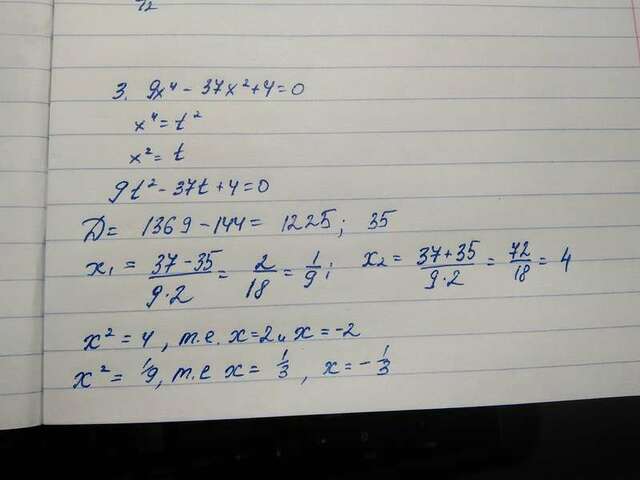 72
3. 9x⁴ - 37x² + 4 = 0
x⁴ = t²
x² = t
9t² - 37t + 4 = 0
D = 1369 - 144 = 1225; 35
x₁ = (37 - 35)/(9·2) = 2/18 = 1/9; x₂ = (37 + 35)/(9·2) = 72/18 = 4
x² = 4, т.е. x = 2 и x = -2
x² = 1/9, т.е x = 1/3, x = -1/3